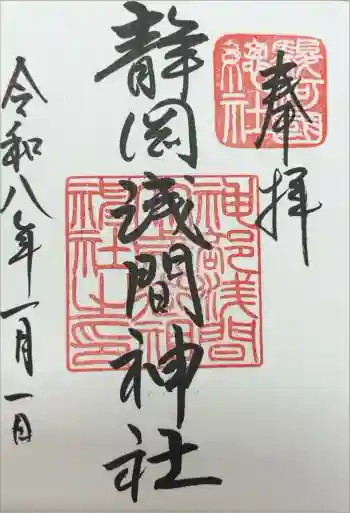 奉拝
駿河國
總社
静岡浅間神社
神部浅間
神社之印
令和八年一月一日